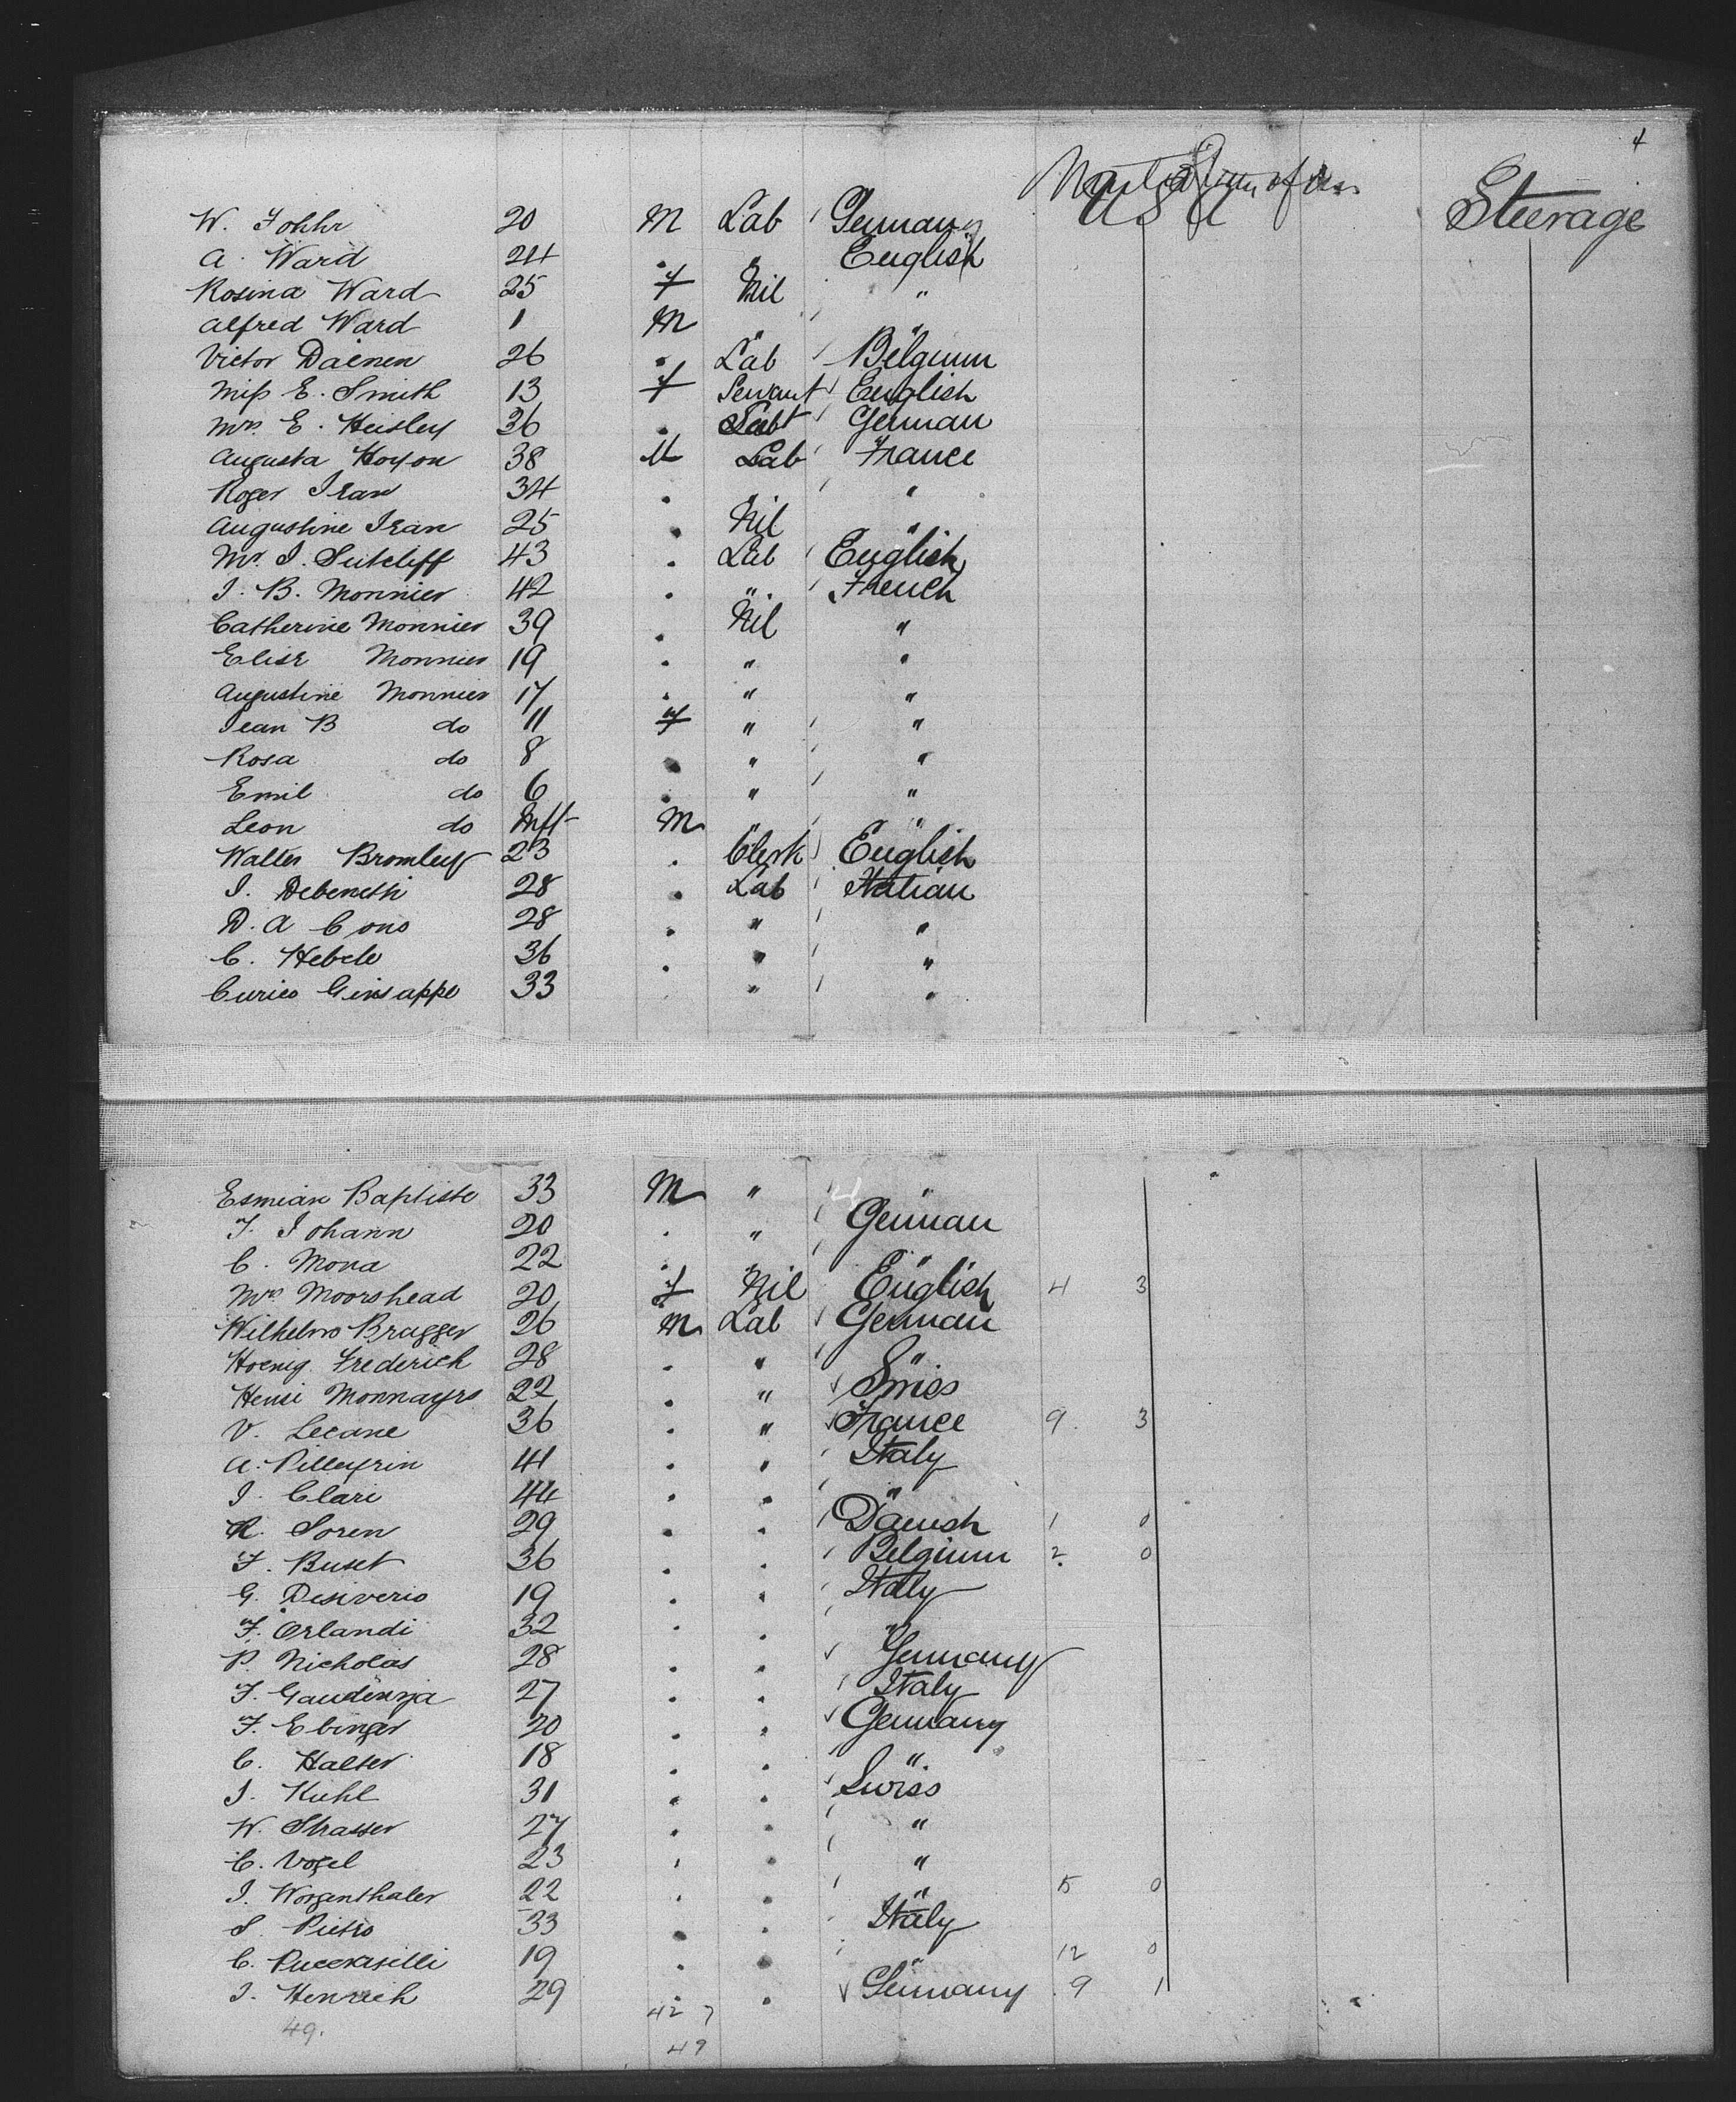 4
U S A Steerage
W. Fohhr 20 M Lab German
A. Ward 24 . " English
Rosina Ward 25 f Nil "
Alfred Ward 1 M " "
Victor Daenen 26 . Lab Belgium
Miss E. Smith 13 f Servant English
Mrs. E. Heisley 36 . German
Augusta Hoyon 38 M Lab France
Roger Iran 34 . " "
Augustine Iran 25 . Nil "
Mr. I. Sutcliff 43 . Lab English
J. B. Monnier 42 . " French
Catherine Monnier 39 . Nil "
Elise Monnier 19 . " "
Augustine Monnier 17 . " "
Jean B do 11 f " "
Rosa do 8 . " "
Emil do 6 . " "
Leon do Inft M " "
Walter Bromley 23 . Clerk English
I. Debeneth 28 . Lab Italian
D. A Cono 28 . " "
C. Hebele 36 . " "
Curico Ginsappe 33 . " "
Esmian Baptiste 33 M " "
F. Johann 20 . " German
C. Mona 22 . " "
Mrs Moorshead 20 f Nil English 4 3
Wilhelm Bragger 26 M Lab German
Hoenig Frederich 28 . " "
Henri Monnayrs 22 . " Swiss
V. Lecane 36 . " France 9 3
A. Pilleyrin 41 . " Italy
I. Clari 44 . . "
R. Soren 29 . . Danish 1 0
F. Buset 36 . . Belgium 2 0
G. Desiverio 19 . . Italy
F. Orlandi 32 . . "
P. Nicholas 28 . . Germany
F. Gaudenzja 27 . . Italy
F. Ebinger 20 . . Germany
C. Halter 18 . . "
J. Kuhl 31 . . Swiss
W. Strasser 27 . . "
C. Vogel 23 . . "
J. Worgenthaler 22 . . " 15 0
S. Pietro 33 . . Italy
C. 19 . . " 12 0
J. Henrich 29 . . Germany 9 1
49. 42 7
49